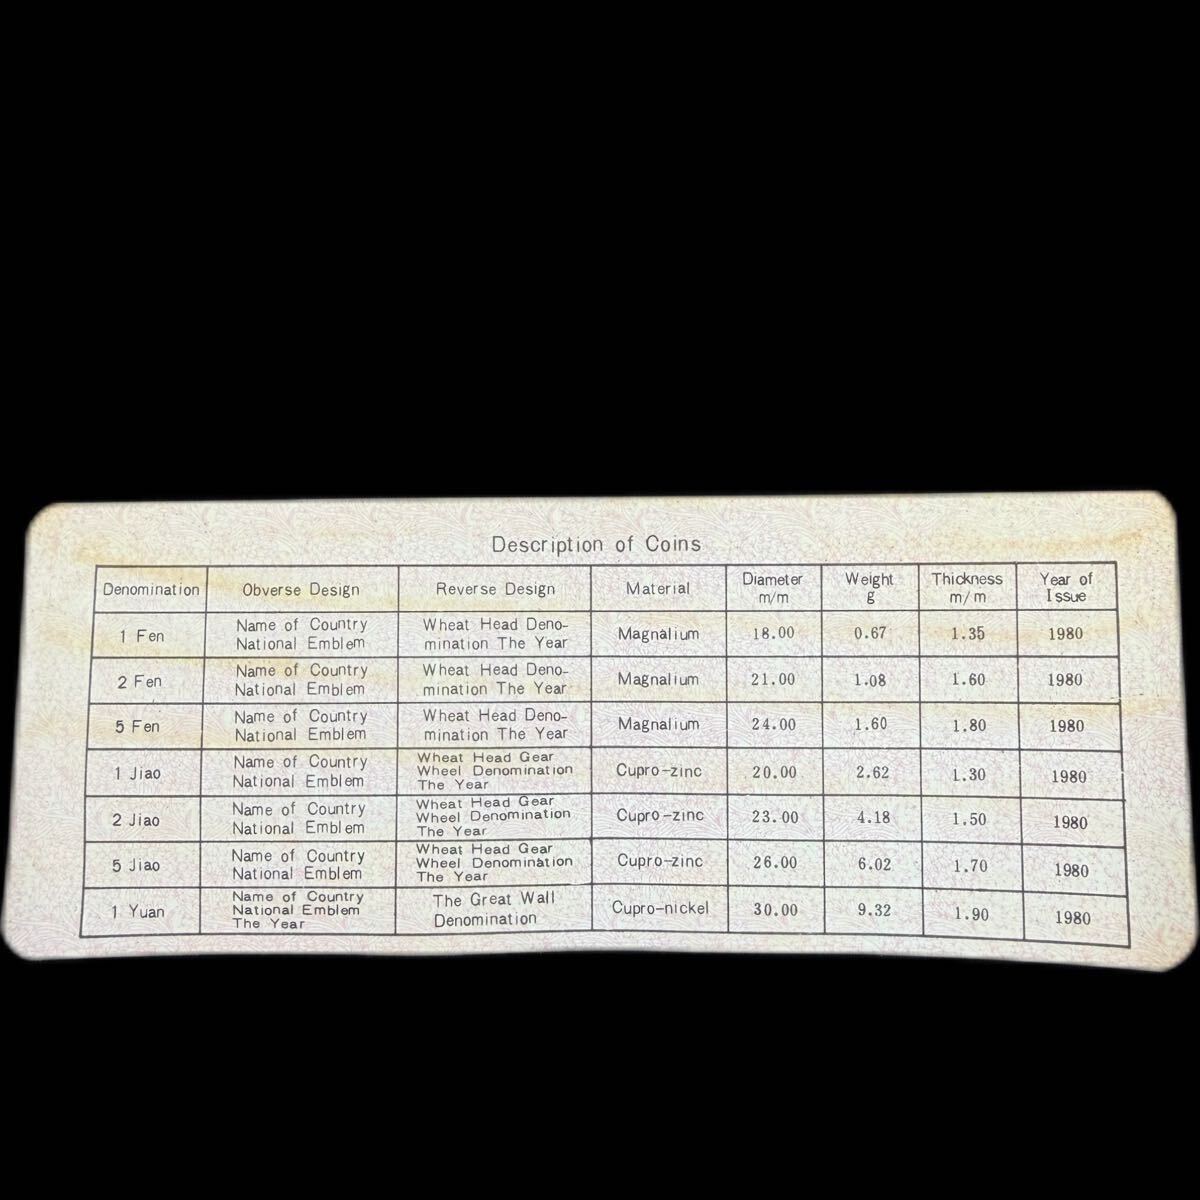 Description of Coins
Denomination Obverse Design Reverse Design Material Diameter m/m Weight g Thickness m/m Year of Issue
1 Fen Name of Country National Emblem Wheat Head Deno- mination The Year Magnalium 18.00 0.67 1.35 1980
2 Fen Name of Country National Emblem Wheat Head Deno- mination The Year Magnalium 21.00 1.08 1.60 1980
5 Fen Name of Country National Emblem Wheat Head Deno- mination The Year Magnalium 24.00 1.60 1.80 1980
1 Jiao Name of Country National Emblem Wheat Head Gear Wheel Denomination The Year Cupro-zinc 20.00 2.62 1.30 1980
2 Jiao Name of Country National Emblem Wheat Head Gear Wheel Denomination The Year Cupro-zinc 23.00 4.18 1.50 1980
5 Jiao Name of Country National Emblem Wheat Head Gear Wheel Denomination The Year Cupro-zinc 26.00 6.02 1.70 1980
1 Yuan Name of Country National Emblem The Year The Great Wall Denomination Cupro-nickel 30.00 9.32 1.90 1980